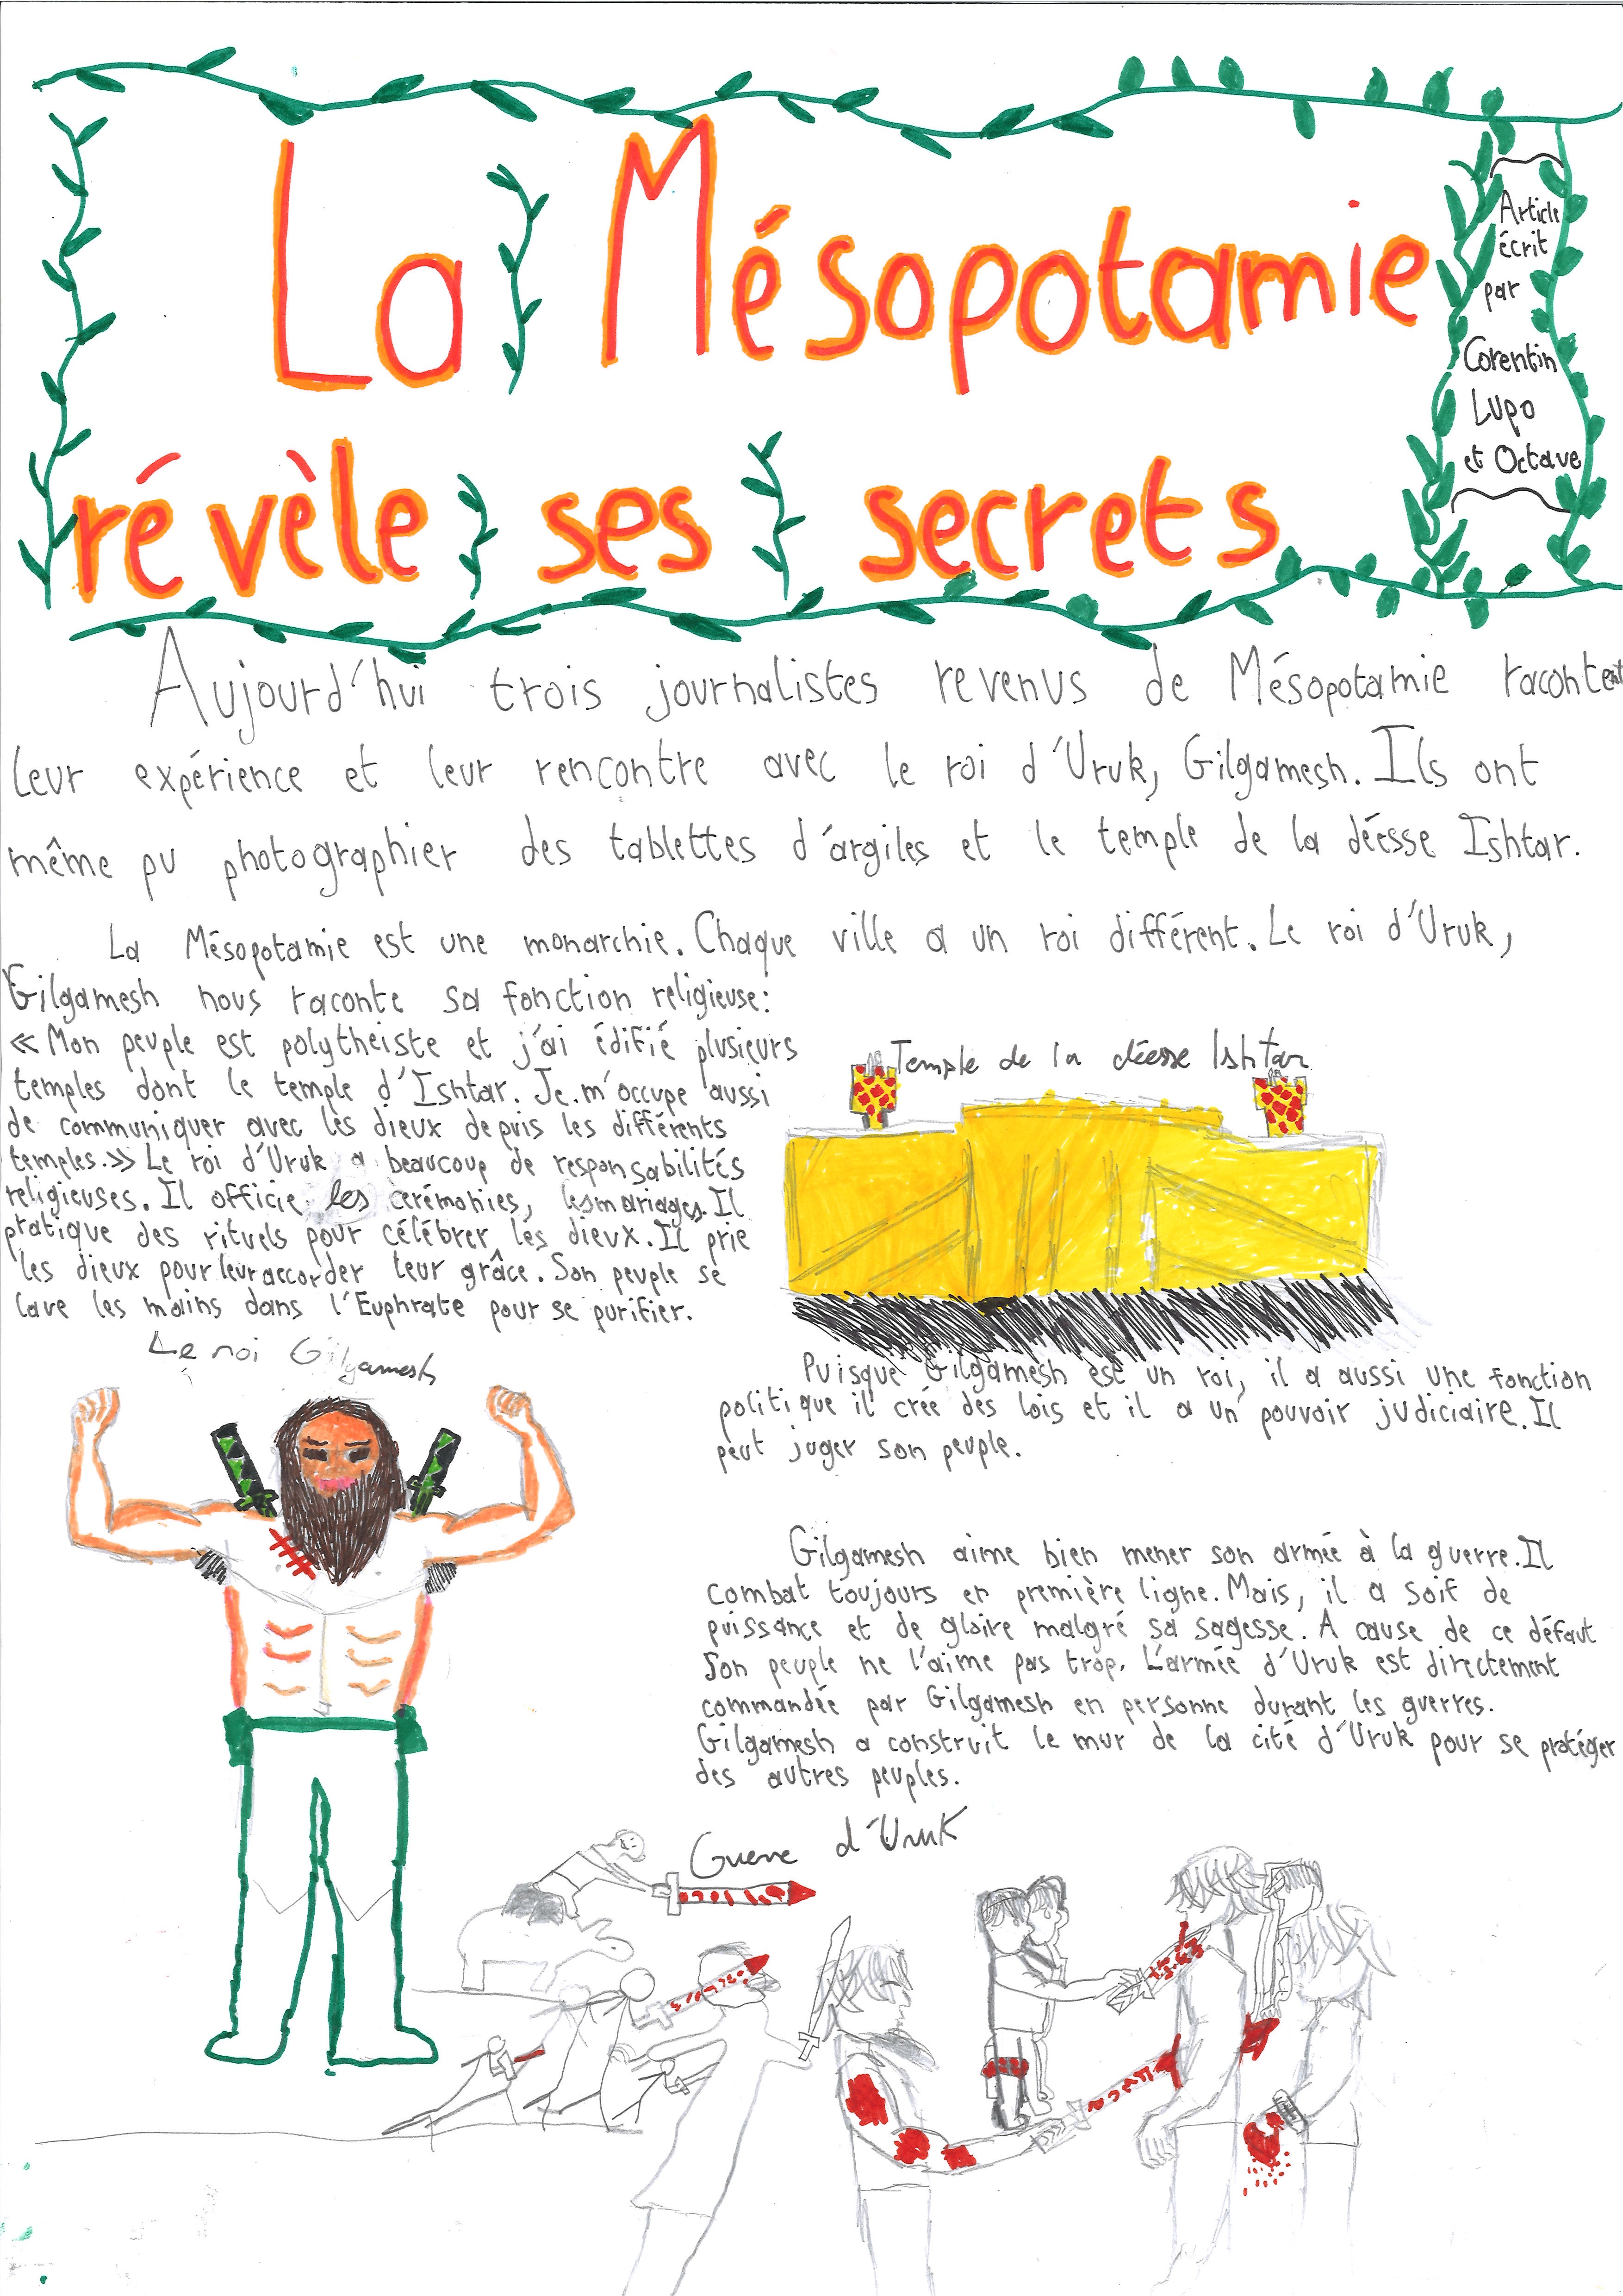 La Mésopotamie
révèle ses secrets
Article
écrit
par
Corentin
Lupo
et Octave
Aujourd'hui trois journalistes revenus de Mésopotamie racontent
leur expérience et leur rencontre avec le roi d'Uruk, Gilgamesh. Ils ont
même pu photographier des tablettes d'argiles et le temple de la déesse Ishtar.
La Mésopotamie est une monarchie. Chaque ville a un roi différent. Le roi d'Uruk,
Gilgamesh nous raconte sa fonction religieuse:
« Mon peuple est polythéiste et j'ai édifié plusieurs
temples dont le temple d'Ishtar. Je m'occupe aussi
de communiquer avec les dieux depuis les différents
temples.» Le roi d'Uruk a beaucoup de responsabilités
religieuses. Il officie les cerémonies, les mariages. Il
pratique des rituels pour célébrer les dieux. Il prie
les dieux pour leur accorder leur grâce. Son peuple se
lave les mains dans l'Euphrate pour se purifier.
Temple de la déesse Ishtar
Le roi Gilgamesh
Puisque Gilgamesh est un roi, il a aussi une fonction
politique il crée des lois et il a un pouvoir judiciaire. Il
peut juger son peuple.
Gilgamesh aime bien mener son armée à la guerre. Il
combat toujours en première ligne. Mais, il a soif de
puissance et de gloire malgré sa sagesse. A cause de ce défaut
son peuple ne l'aime pas trop. L'armée d'Uruk est directement
commandée par Gilgamesh en personne durant les guerres.
Gilgamesh a construit le mur de la cité d'Uruk pour se protéger
des autres peuples.
Guerre d'Uruk